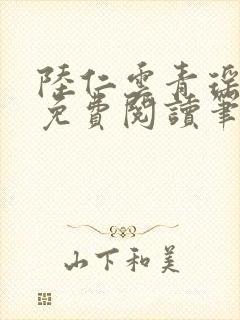 陸仁雲青瑶
免費閱讀筆
山下和美